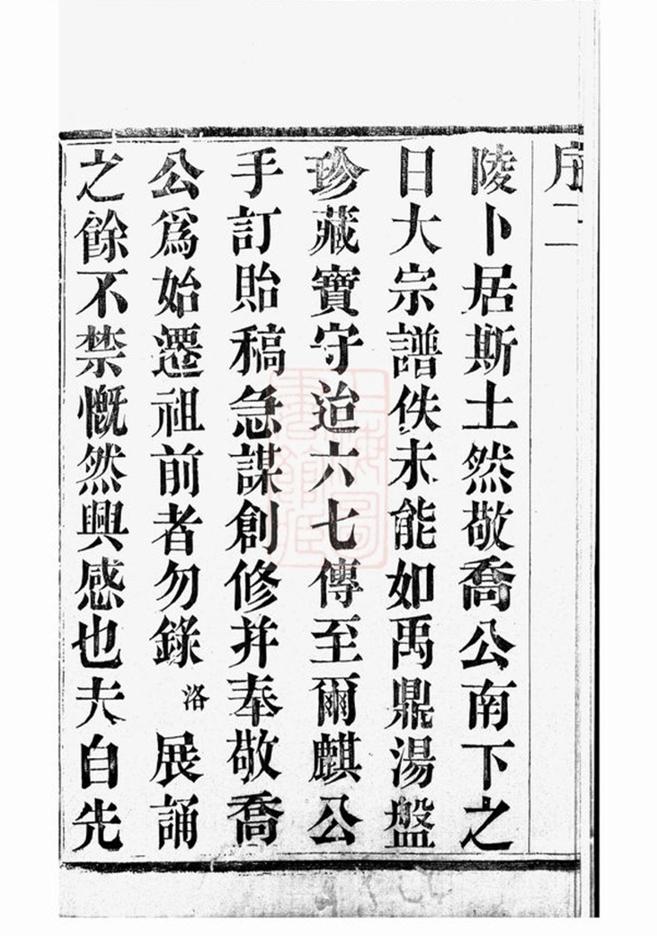 序二
陵卜居斯土然敬喬公南下之
日大宗譜佚未能如禹鼎湯盤
珍藏寶守迨六七傳至爾麒公
手訂貽稿急謀創修并奉敬喬
公爲始遷祖前者勿錄洛展誦
之餘不禁慨然興感也夫自先